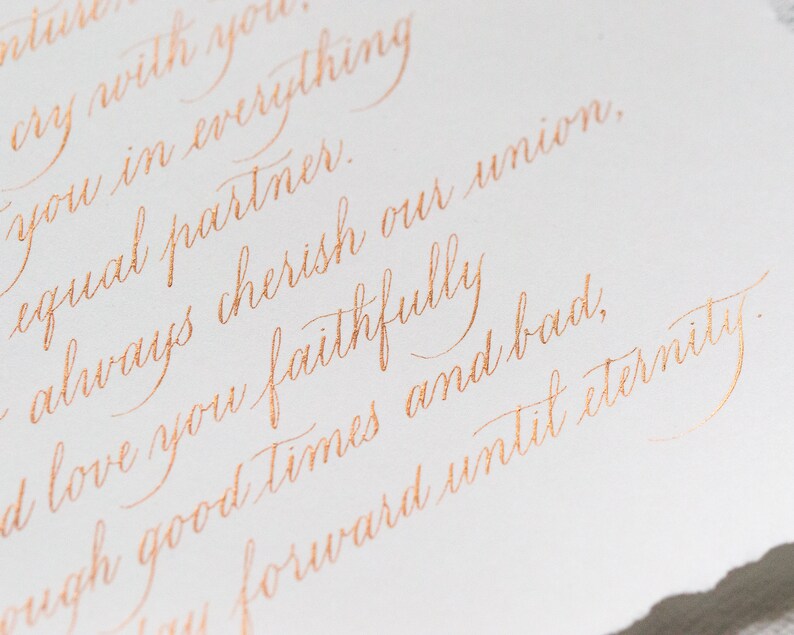 cry with you,
you in everything
equal partner.
always cherish our union,
love you faithfully
good times and bad,
forward until eternity.